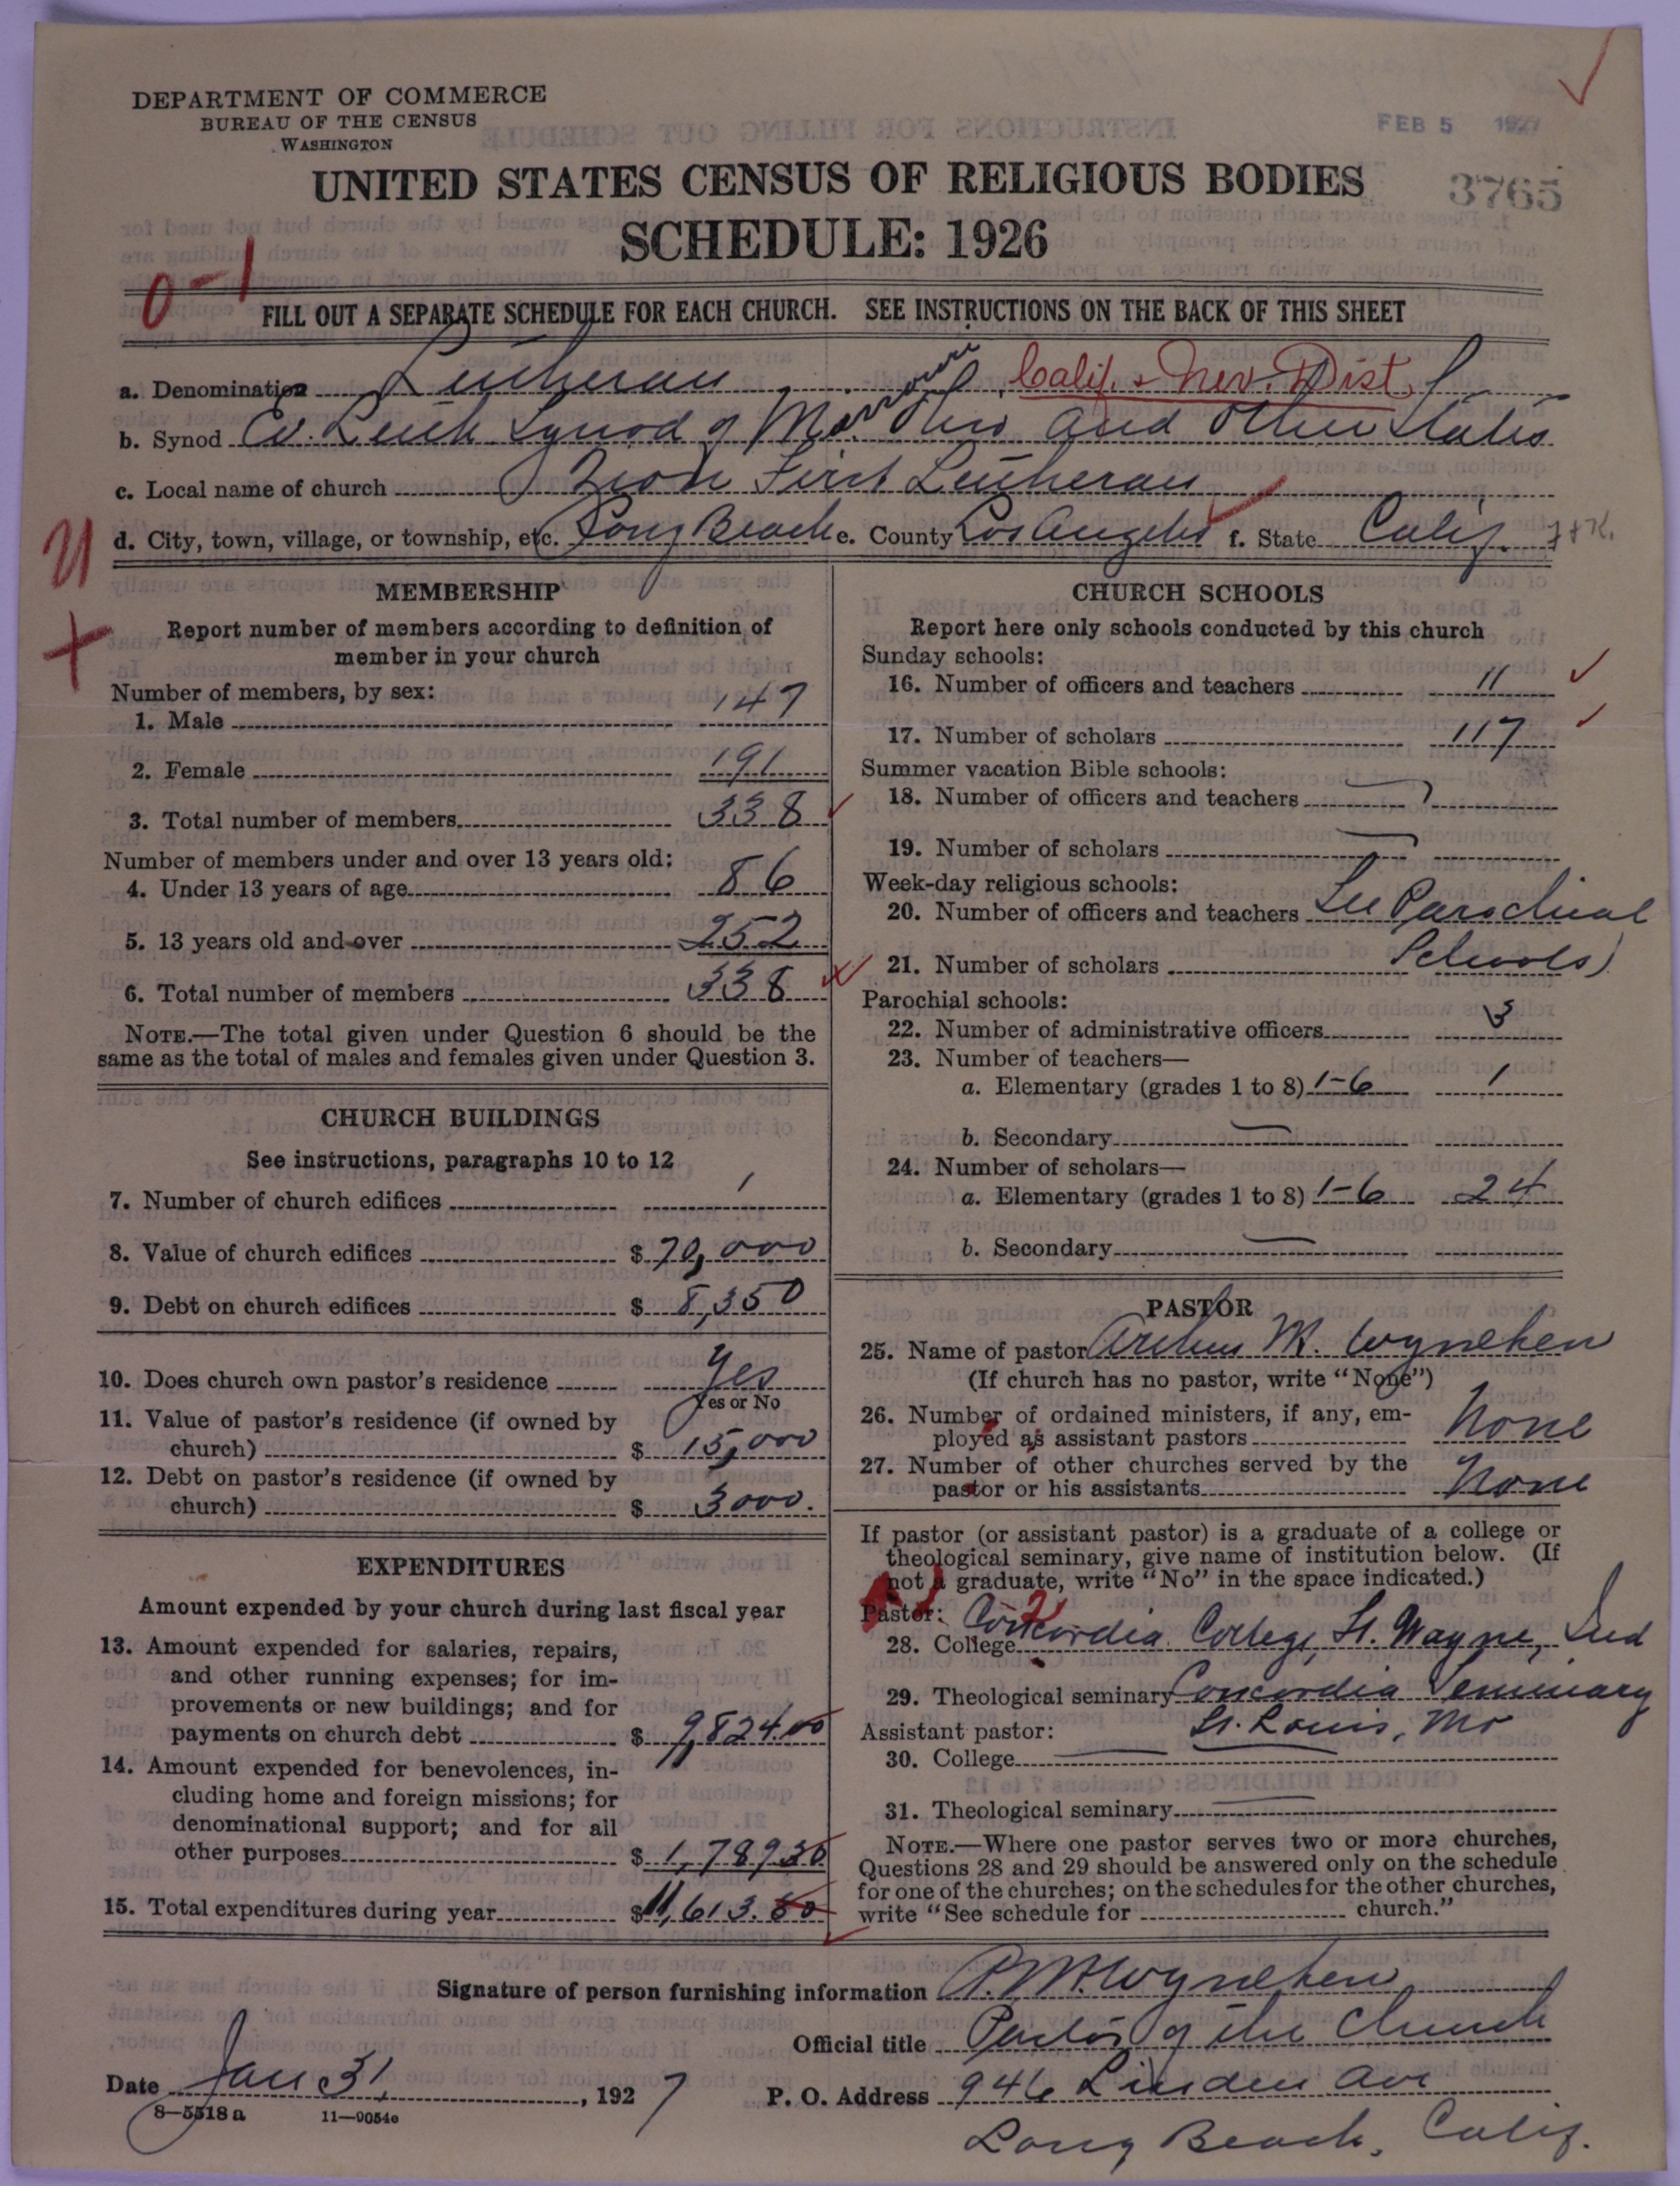 DEPARTMENT OF COMMERCE
BUREAU OF THE CENSUS
WASHINGTON
FEB 5 1927
UNITED STATES CENSUS OF RELIGIOUS BODIES
3765
SCHEDULE: 1926
0-1
FILL OUT A SEPARATE SCHEDULE FOR EACH CHURCH. SEE INSTRUCTIONS ON THE BACK OF THIS SHEET
a. Denomination Lutheran Calif. & Nev. Dist.
b. Synod Ev. Luth Synod of Mo. Ohio and Other States
c. Local name of church Zion First Lutheran
d. City, town, village, or township, etc. Long Beach e. County Los Angeles f. State Calif.
MEMBERSHIP
Report number of members according to definition of
member in your church
Number of members, by sex:
1. Male 147
2. Female 191
3. Total number of members 338
Number of members under and over 13 years old:
4. Under 13 years of age 86
5. 13 years old and over 252
6. Total number of members 338
NOTE.—The total given under Question 6 should be the
same as the total of males and females given under Question 3.
CHURCH BUILDINGS
See instructions, paragraphs 10 to 12
7. Number of church edifices 1
8. Value of church edifices $ 70,000
9. Debt on church edifices $ 8,350
10. Does church own pastor's residence Yes
Yes or No
11. Value of pastor's residence (if owned by
church) $ 15,000
12. Debt on pastor's residence (if owned by
church) $ 3000.
EXPENDITURES
Amount expended by your church during last fiscal year
13. Amount expended for salaries, repairs,
and other running expenses; for im-
provements or new buildings; and for
payments on church debt $ 9,824.00
14. Amount expended for benevolences, in-
cluding home and foreign missions; for
denominational support; and for all
other purposes $ 1,789
15. Total expenditures during year $ 11,613.
CHURCH SCHOOLS
Report here only schools conducted by this church
Sunday schools:
16. Number of officers and teachers 11
17. Number of scholars 117
Summer vacation Bible schools:
18. Number of officers and teachers
19. Number of scholars
Week-day religious schools:
20. Number of officers and teachers See Parochial
21. Number of scholars Schools)
Parochial schools:
22. Number of administrative officers 3
23. Number of teachers—
a. Elementary (grades 1 to 8) 1-6 1
b. Secondary —
24. Number of scholars—
a. Elementary (grades 1 to 8) 1-6 24
b. Secondary —
PASTOR
25. Name of pastor Arthur M. Wyneken
(If church has no pastor, write "None")
26. Number of ordained ministers, if any, em-
ployed as assistant pastors None
27. Number of other churches served by the
pastor or his assistants None
If pastor (or assistant pastor) is a graduate of a college or
theological seminary, give name of institution below. (If
not a graduate, write "No" in the space indicated.)
Pastor:
28. College Concordia College, Ft. Wayne, Ind
29. Theological seminary Concordia Seminary
Assistant pastor: St. Louis, Mo
30. College —
31. Theological seminary —
NOTE.—Where one pastor serves two or more churches,
Questions 28 and 29 should be answered only on the schedule
for one of the churches; on the schedules for the other churches,
write "See schedule for church."
Signature of person furnishing information A. M. Wyneken
Official title Pastor of the Church
Date Jan 31, 1927 P. O. Address 946 Linden Ave
8—5518a 11—9054c
Long Beach, Calif.